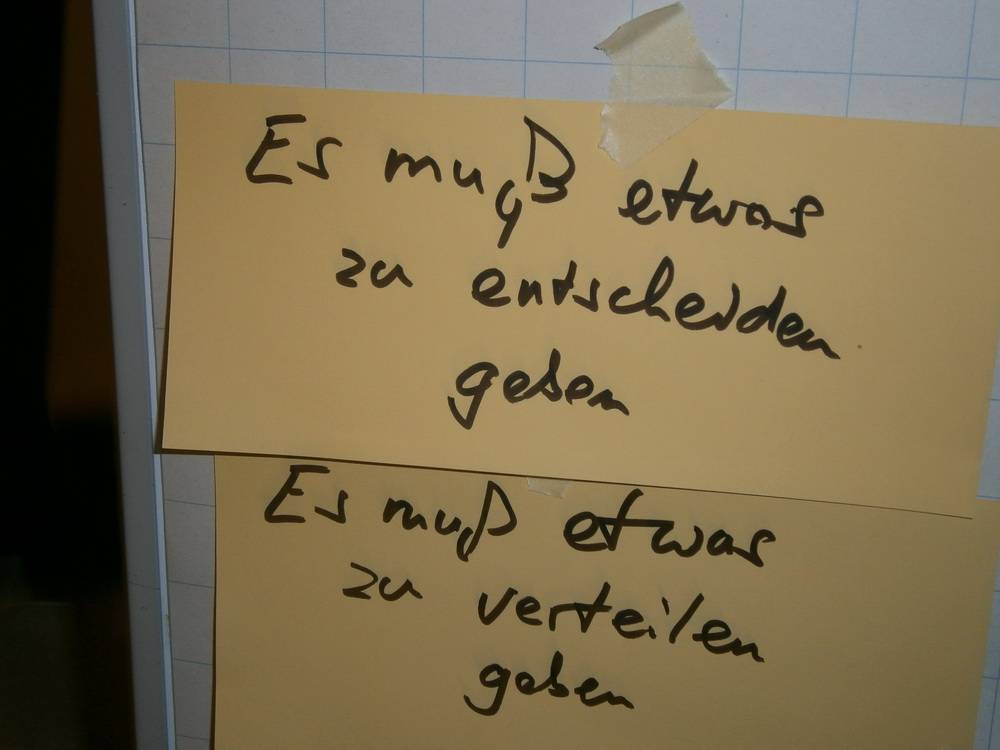 Es muß etwas
zu entscheiden
geben
Es muß etwas
zu verteilen
geben